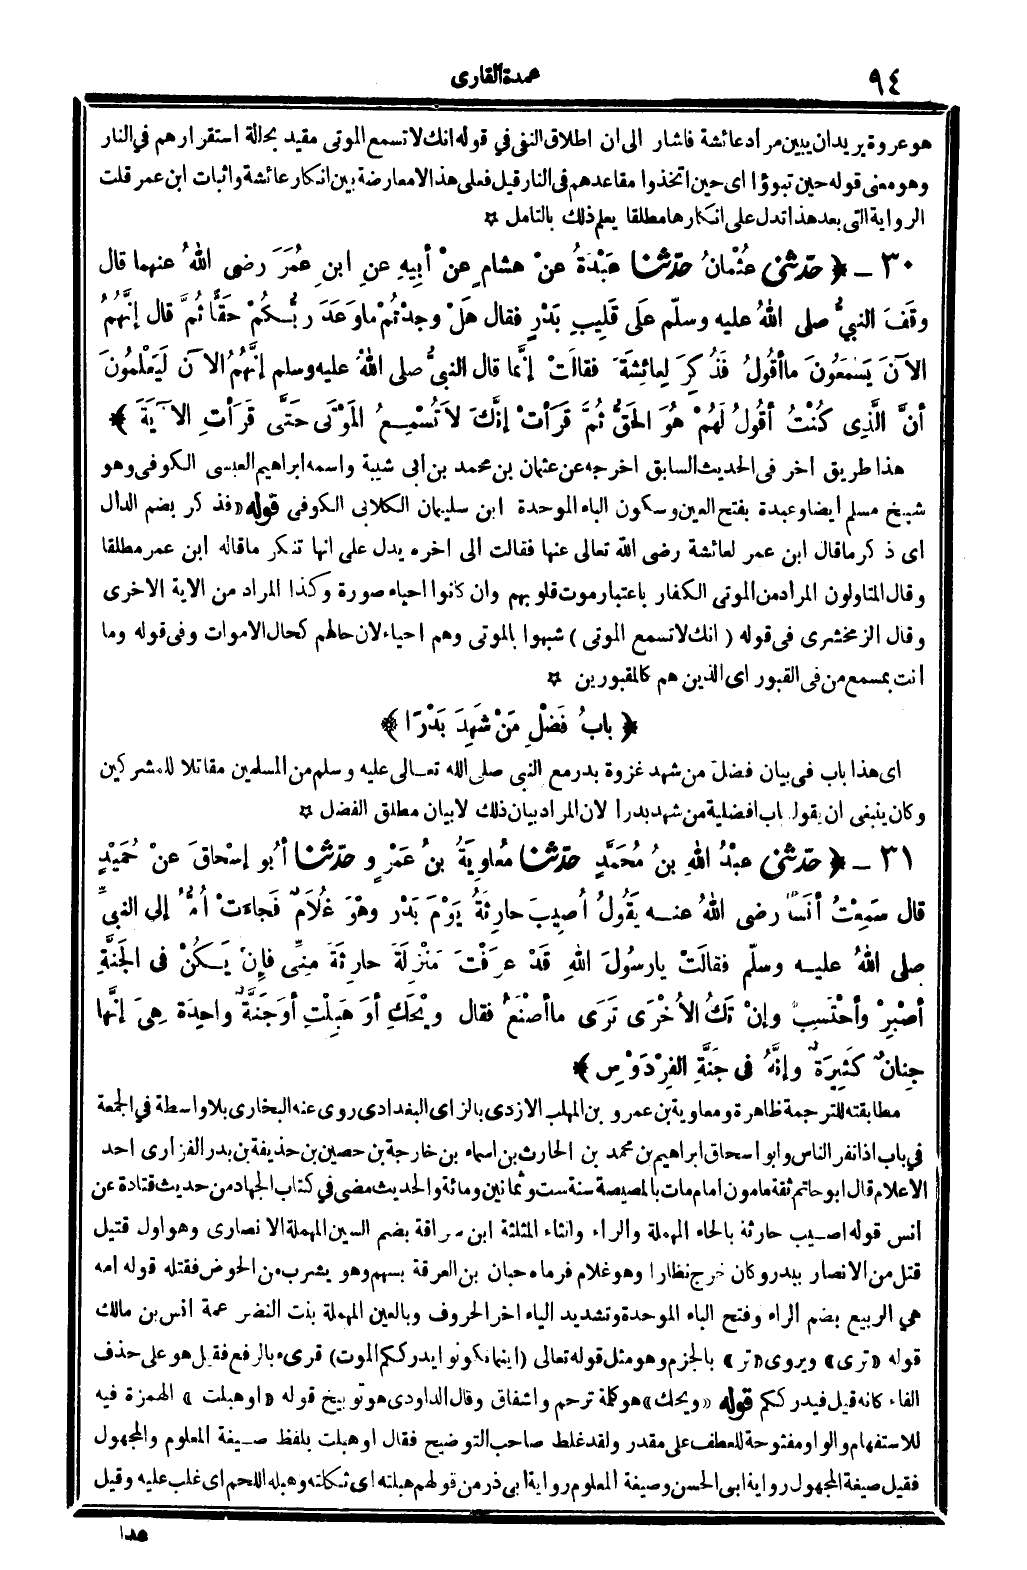 ٩٤
عمدة القاری
هو عروة يريد ان يبين مراد عائشة فاشار الى ان اطلاق النفى في قوله انك لا تسمع الموتى مقيد بحالة استقرارهم في النار
وهو معنى قوله حين تبوؤا اى حين اتخذوا مقاعدهم فى النار قيل فعلى هذا لا معارضة بين انكار عائشة واثبات ابن عمر قلت
الرواية التى بعد هذا تدل على انكارها مطلقا يعلم ذلك بالتامل ☆
٣٠ ـ ﴿ حَدَّثَنِي عُثْمَانُ حَدَّثَنَا عَبْدَةُ عنْ هشامٍ عنْ أبِيهِ عنِ ابنِ عُمَرَ رضى اللهُ عنهما قال
وقَفَ النبيُّ صلى اللهُ عليه وسلّم عَلَى قَلِيبِ بَدْرٍ فقال هَلْ وجدْتُمْ ما وَعَدَ ربُّـكُمْ حَقًّا ثُمَّ قال إنَّهُمُ
الآنَ يَسْمَعُونَ ما أقُولُ فَذُكِرَ لِعائِشَةَ فقالَتْ إنَّما قال النبيُّ صلى اللهُ عليه وسلم إنَّهُمُ الآنَ لَيَعْلَمُونَ
أنَّ الَّذِى كُنْتُ أقُولُ لَهُمْ هُوَ الحَقُّ ثُمَّ قَرَأتْ إنَّكَ لاَ تُسْمِـعُ المَوْتَى حَتَّى قَرَأتِ الآيَةَ ﴾
هذا طريق اخر فى الحديث السابق اخرجه عن عثمان بن محمد بن ابى شيبة واسمه ابراهيم العبسى الكوفى وهو
شيخ مسلم ايضا وعبدة بفتح العين وسكون الباء الموحدة ابن سليمان الكلابى الكوفى قوله «فذكر بضم الذال
اى ذكر ما قال ابن عمر لعائشة رضى الله تعالى عنها فقالت الى اخره يدل على انها تنكر ما قاله ابن عمر مطلقا
وقال المتاولون المراد من الموتى الكفار باعتبار موت قلوبهم وان كانوا احياء صورة وكذا المراد من الاية الاخرى
وقال الزمخشرى فى قوله ( انك لا تسمع الموتى ) شبهوا بالموتى وهم احياء لان حالهم كحال الاموات وفى قوله وما
انت بمسمع من فى القبور اى الذين هم كالمقبورين ☆
﴿ بابُ فَضْلِ مَنْ شَهِدَ بَدْرًا ﴾
اى هذا باب فى بيان فضل من شهد غزوة بدر مع النبى صلى الله تعـالى عليه وسلم من المسلمين مقاتلا للمشركين
وكان ينبغى ان يقول باب افضلية من شهد بدرا لان المراد بيان ذلك لا بيان مطلق الفضل ☆
٣١ ـ ﴿ حَدَّثَنِي عبْدُ اللهِ بنُ مُحَمَّدٍ حَدَّثَنَا مُعاوِيَةُ بنُ عَمْرٍو حَدَّثَنَا أبُو إسْحاقَ عنْ حُمَيْدٍ
قال سَمِعْتُ أنَسًا رضى اللهُ عنـه يَقُولُ أُصِيبَ حارِثَةُ يَوْمَ بَدْرٍ وهْوَ غُلاَمٌ فَجاءَتْ أُمُّهُ إلى النبيِّ
صلى اللهُ عليـه وسلّم فقالَتْ يا رسُولَ اللهِ قَدْ عرَفْتَ مَنْزِلَةَ حارِثَةَ مِنِّي فإنْ يَـكُنْ فى الجَنَّةِ
أصْبِرْ وأحْتَسِبْ وإنْ تَكُ الأُخْرَى تَرَى ما أصْنَعُ فقال ويْحَكِ أوَ هَبِلْتِ أوَ جَنَّةٌ واحِدَةٌ هِيَ إنَّها
جِنانٌ كَثِيرَةٌ وإنَّهُ فى جَنَّةِ الفِرْدَوْسِ ﴾
مطابقته للترجمة ظاهرة ومعاوية بن عمرو بن المهلب الازدى بالزاى البغدادى روى عنه البخارى بلا واسطة في الجمعة
في باب اذا نفر الناس وابو اسحاق ابراهيم بن محمد بن الحارث بن اسماء بن خارجة بن حصين بن حذيفة بن بدر الفزارى احد
الاعلام قال ابو حاتم ثقة مامون امام مات بالمصيصة سنة ست وثمانين ومائة والحديث مضى في كتاب الجهاد من حديث قتادة عن
انس قوله اصيب حارثة بالحاء المهملة والراء والثاء المثلثة ابن سراقة بضم السين المهملة الانصارى وهو اول قتيل
قتل من الانصار ببدر وكان خرج نظارا وهو غلام فرماه حبان بن العرقة بسهم وهو يشرب من الحوض فقتله قوله امه
هي الربيع بضم الراء وفتح الباء الموحدة وتشديد الياء اخر الحروف وبالعين المهملة بنت النضر عمة انس بن مالك
قوله «ترى» ويروى «تر» بالجزم وهو مثل قوله تعالى (اينما تكونوا يدرككم الموت) قرىء بالرفع فقيل هو على حذف
الفاء كانه قيل فيدرككم قوله «ويحك» هو كلمة ترحم واشفاق وقال الداودى هو توبيخ قوله «او هبلت» الهمزة فيه
للاستفهام والواو مفتوحة للعطف على مقدر ولقد غلط صاحب التوضيح فقال او هبلت بلفظ صيغة المعلوم والمجهول
فقيل صيغة المجهول رواية ابى الحسن وصيغة المعلوم رواية ابى ذر من قولهم هبلته اى ثكلته وهبله اللحم اى غلب عليه وقيل
هذا